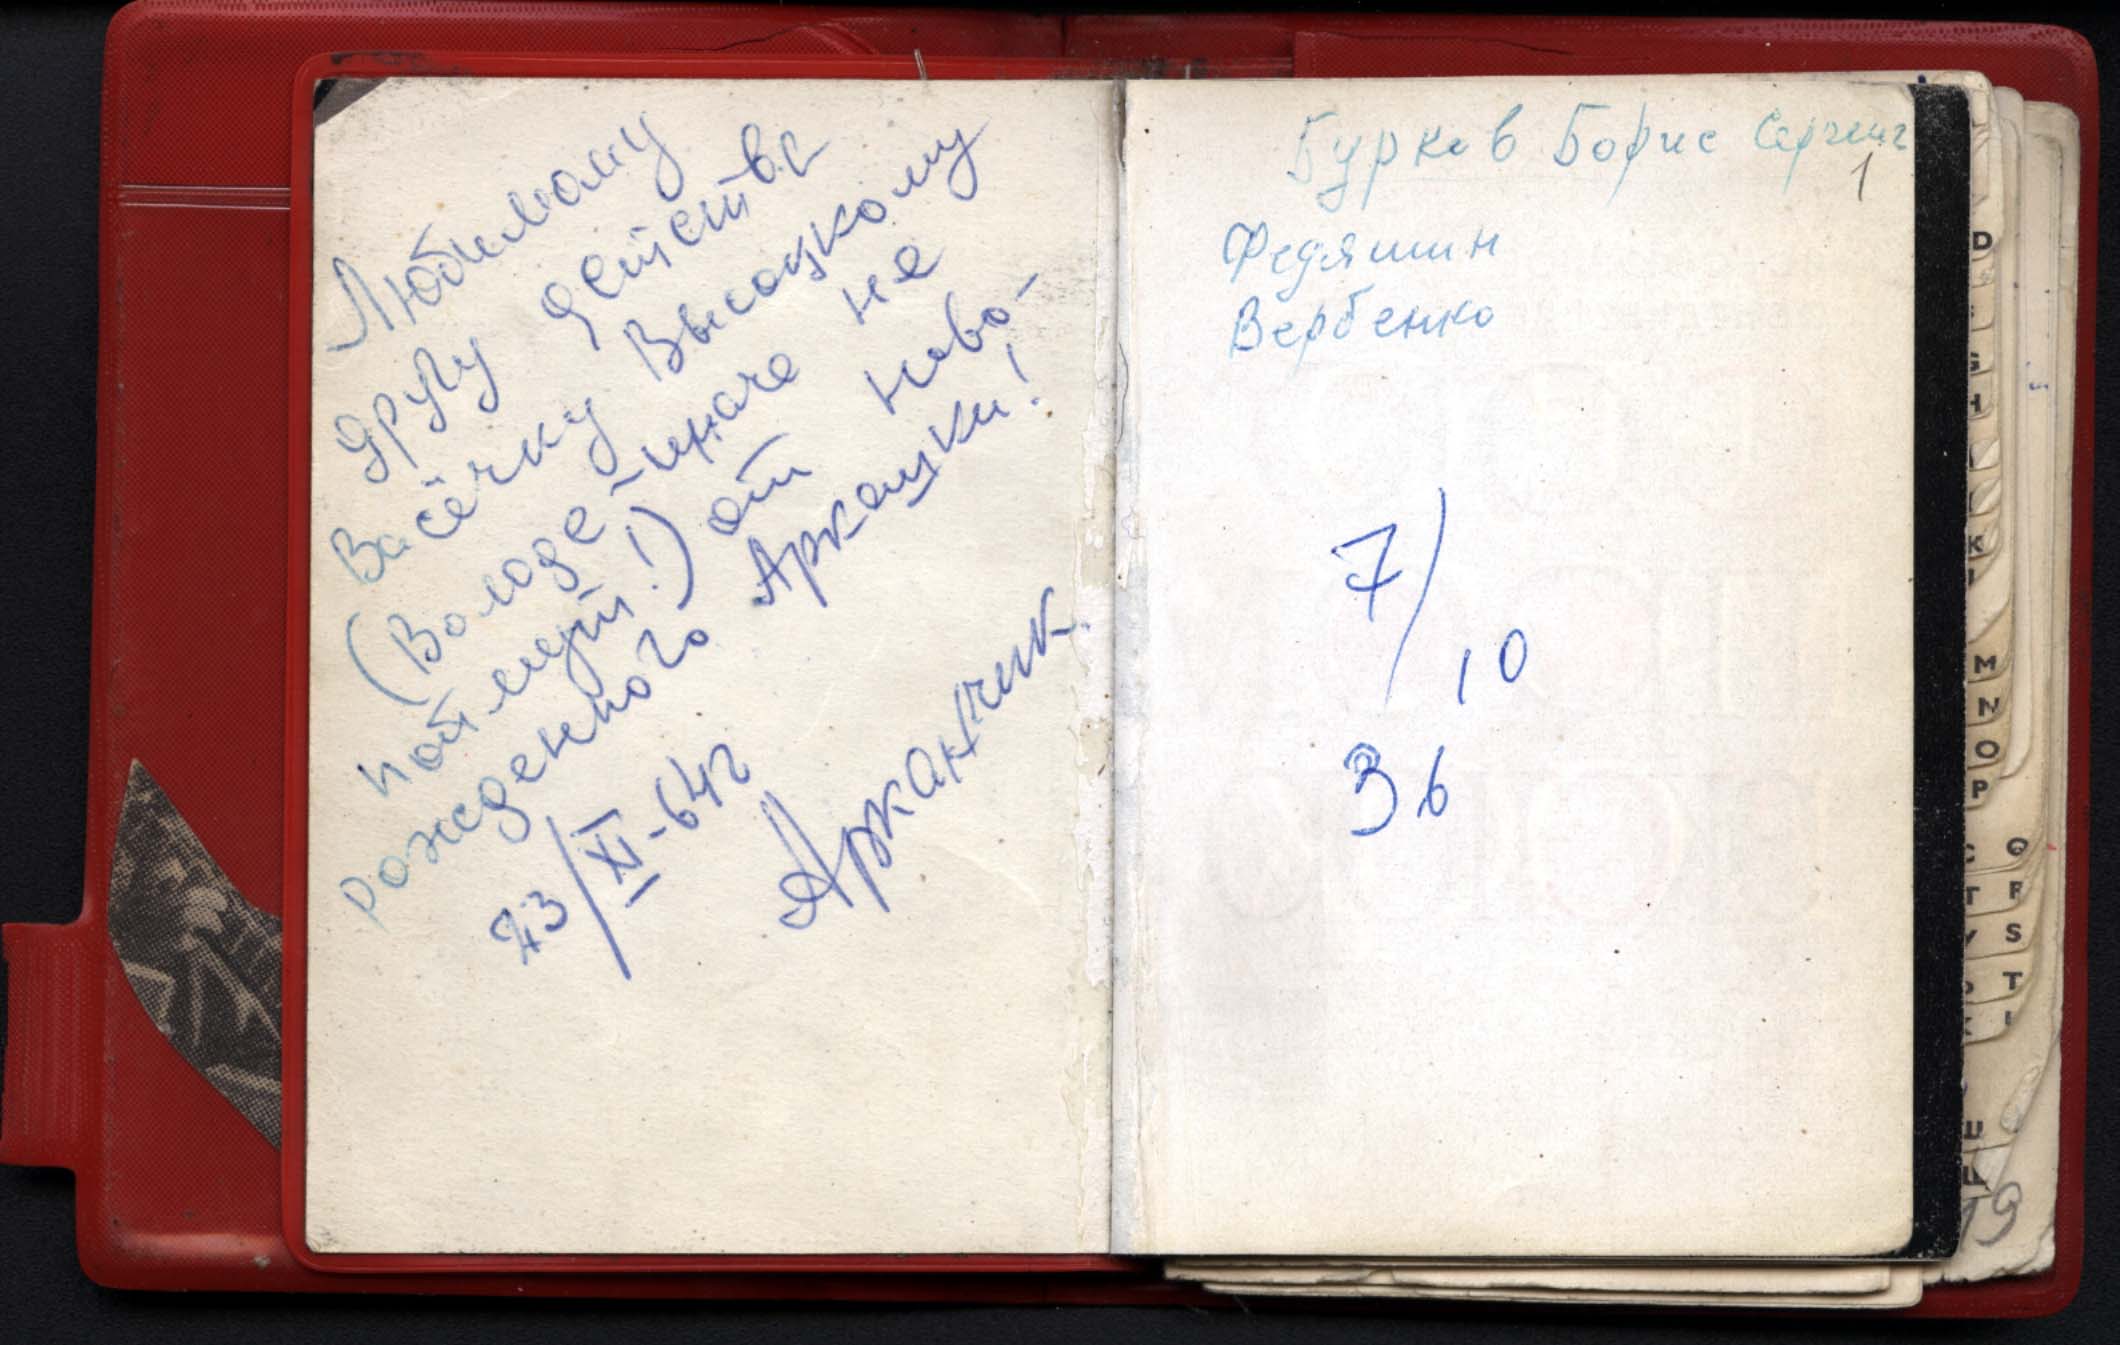 Любимому
другу детства
Васёчку Высоцкому
(Володе - иначе не
поймут!) от ново-
рожденного Аркашки!
23/XI-64г
Арканчик.
Бурков Борис
1
Федяшин
Вербенко
7/10
36
D
H
K
M
N
O
P
Q
T
F
S
T
Ш
19